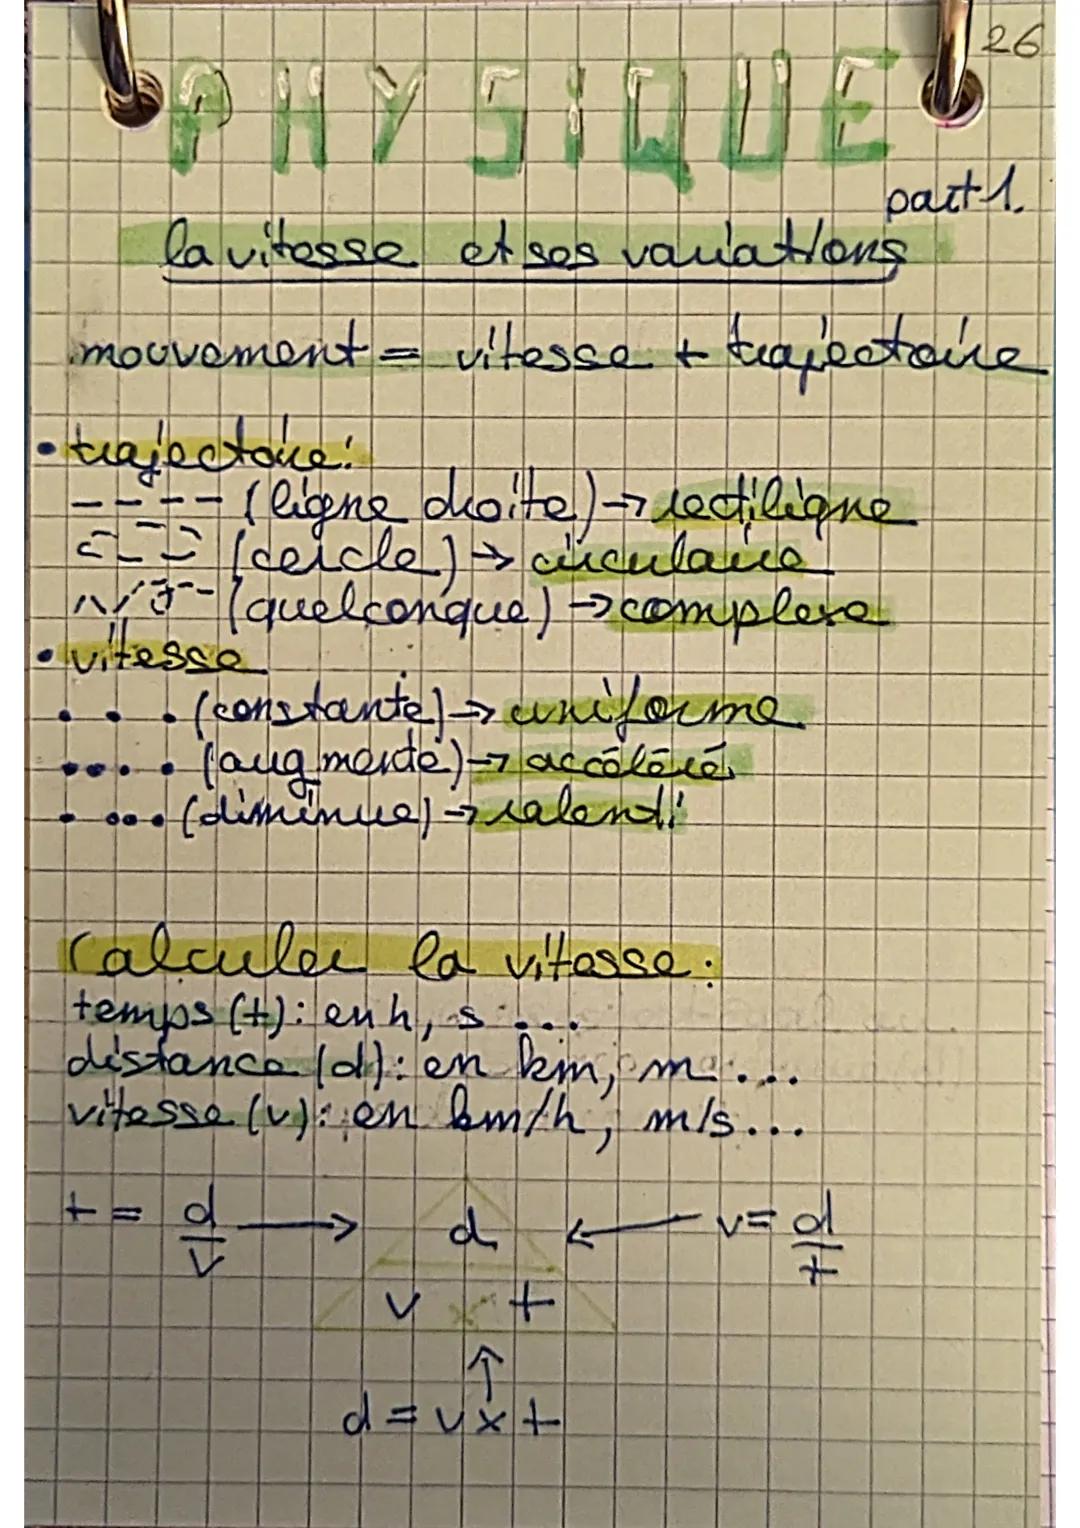 26
PHYSIQUE
part 1.
la vitesse et ses variations
mouvement = vitesse + trajectoire
• trajectoire:
---- (ligne droite) → rectiligne
(cercle) → circulaire
(quelconque) → complexe
• vitesse
. . . (constante) → uniforme
.... (augmente) → accéléré
. .... (diminue) → ralenti
Calculer la vitesse:
temps (t): en h, s ...
distance (d): en km, m ...
vitesse (v): en km/h, m/s...
t = d/v → d ← v = d/t
v x t
↑
d = v x t